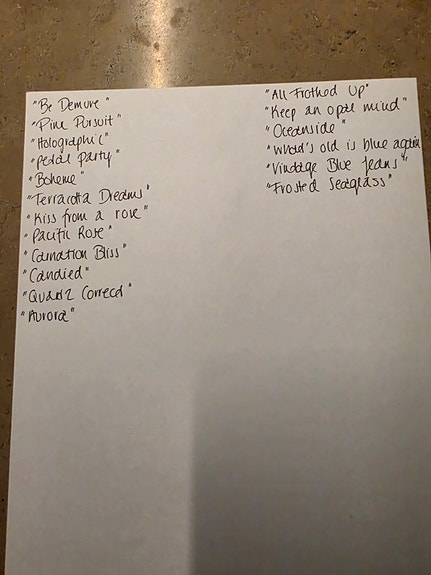 "Be Demure"
"Pink Pursuit"
"Holographic"
"Petal Party"
"Boheme"
"Terracotta Dreams"
"Kiss from a rose"
"Pacific Rose"
"Carnation Bliss"
"Candied"
"Quartz Correct"
"Aurora"
"All Frothed Up"
"Keep an opal mind"
"Oceanside"
"What's old is blue again
"Vintage Blue Jeans"
"Frosted Seaglass"